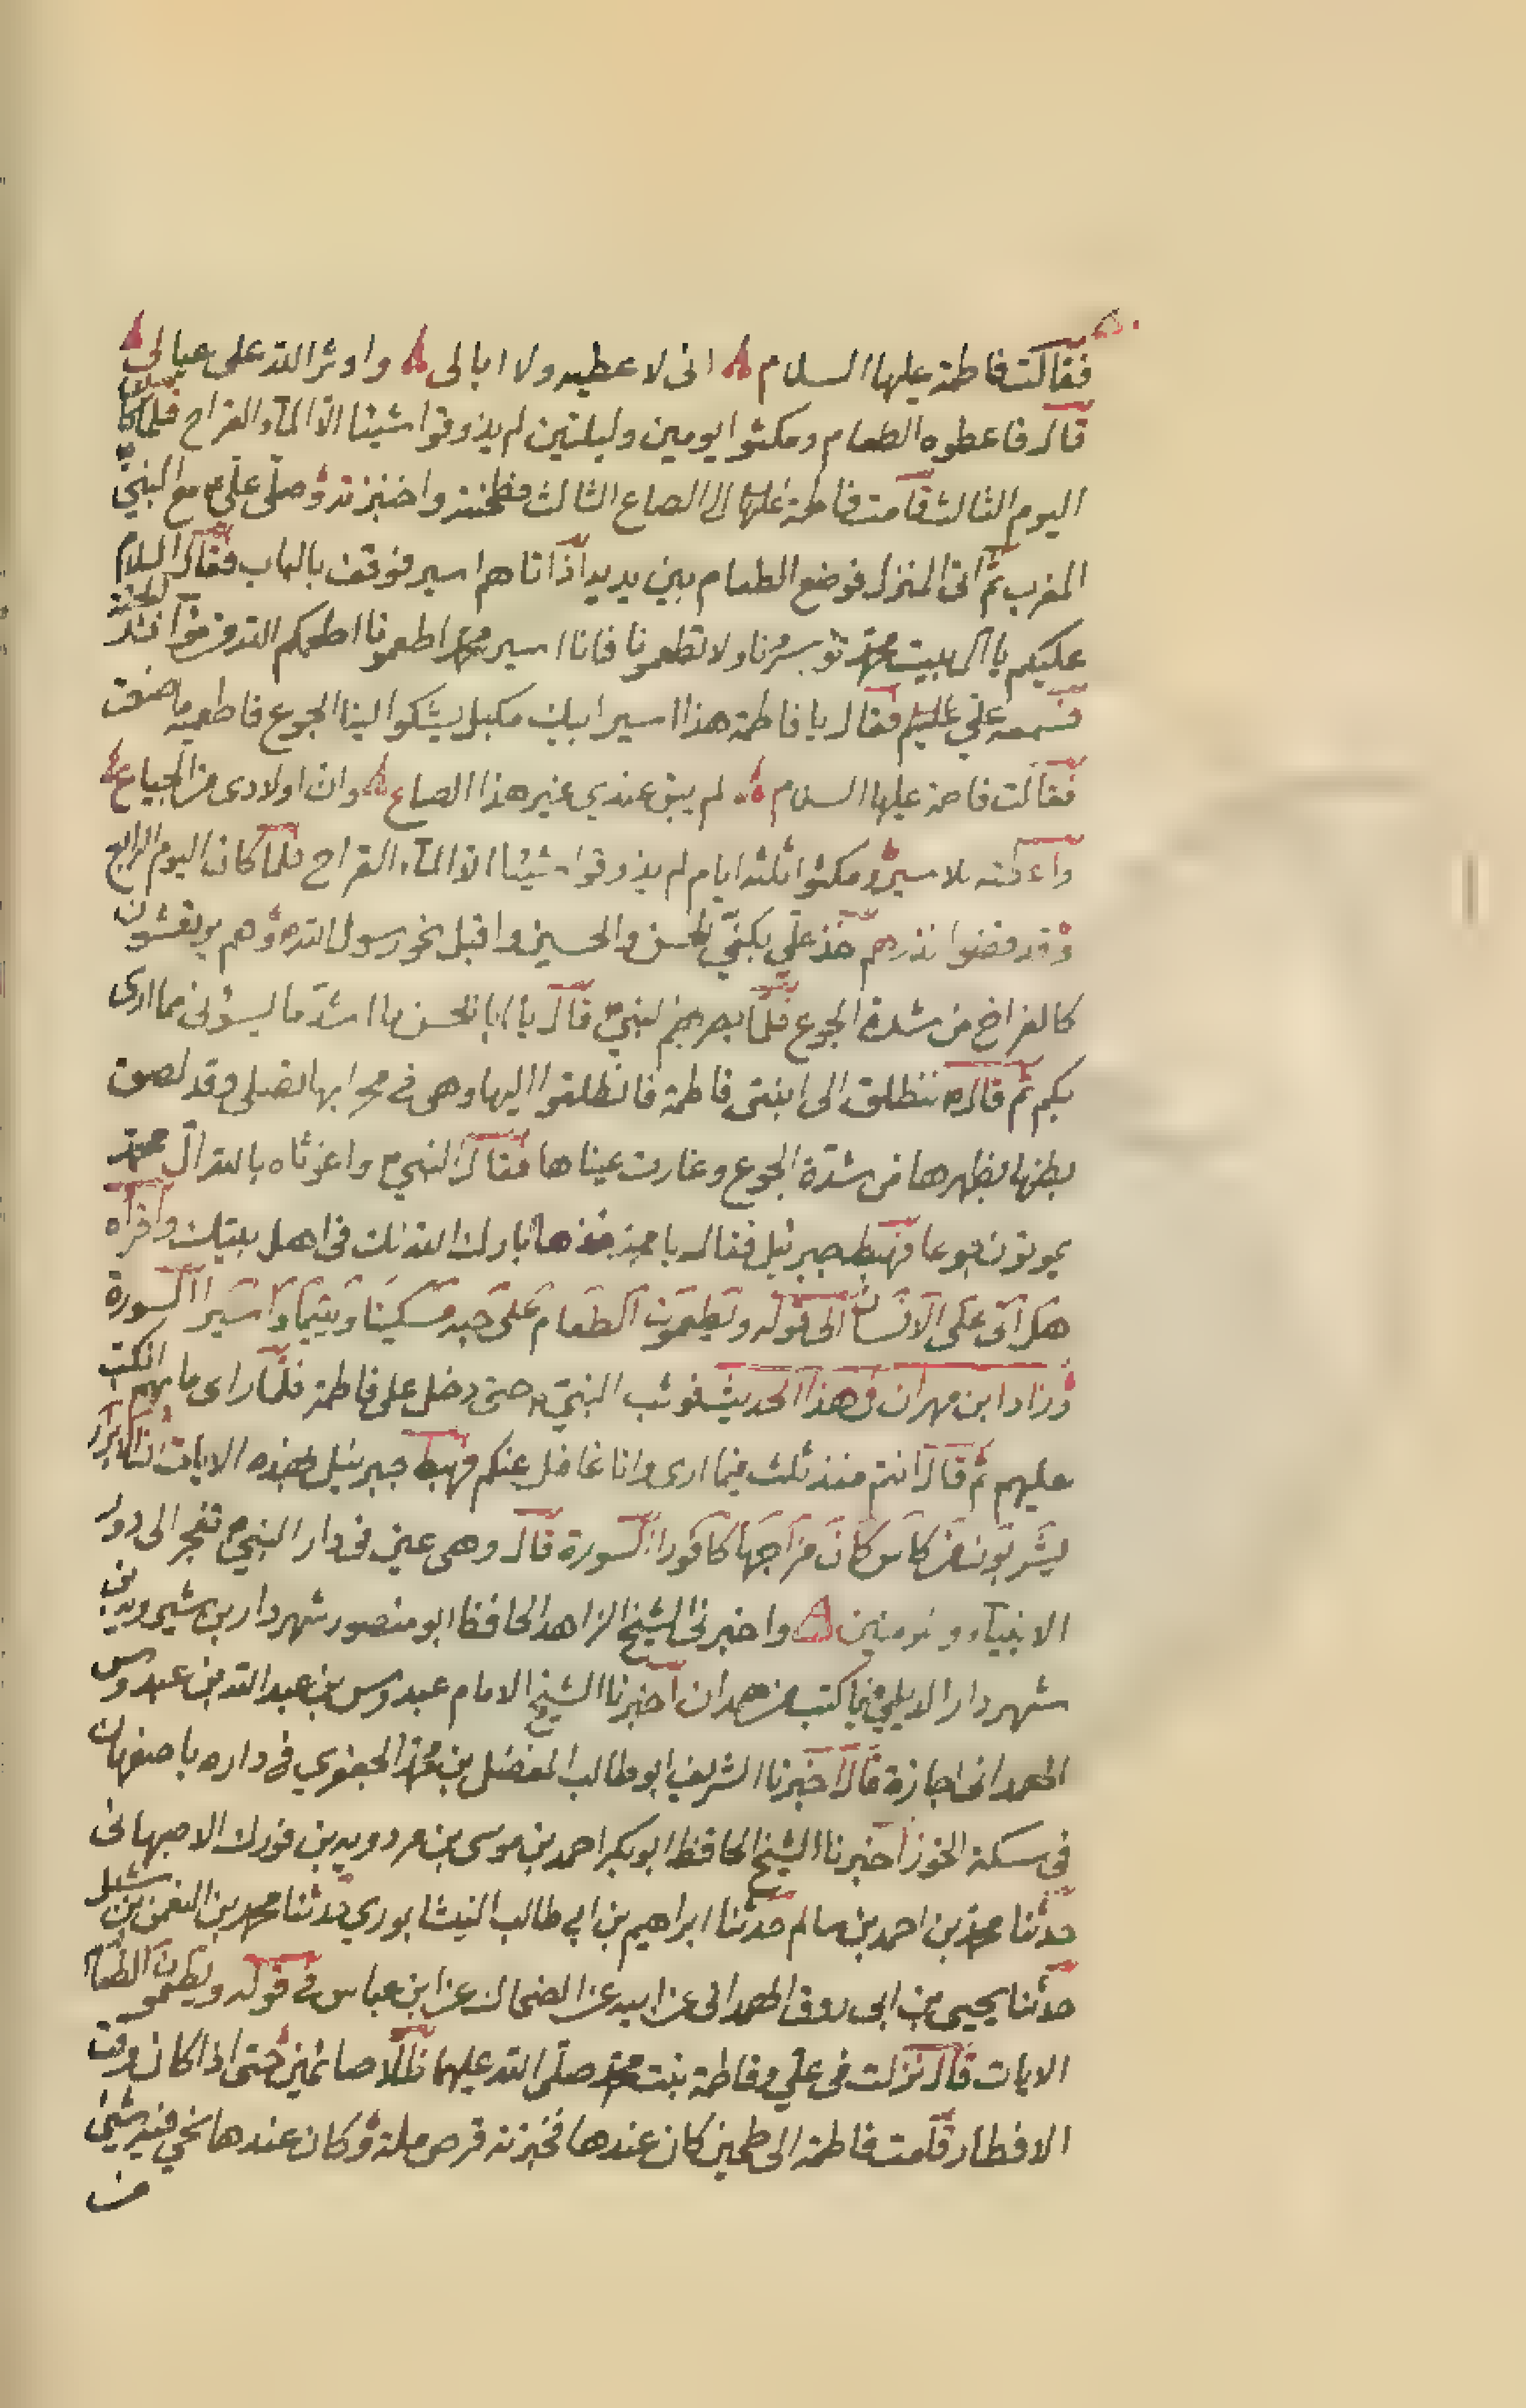 فقالت فاطمة عليها السلام انى لاعطيه ولا ابالى واوثر الله على عيالى
قال فاعطوه الطعام ومكثوا يومين وليلتين لم يذوقوا شيئا الا الماء القراح فلما كان
اليوم الثالث قامت فاطمة عليها الى الصاع الثالث فطحنته واختبزته وصلى على مع النبى
المغرب ثم اتى المنزل فوضع الطعام بين يديه اذ اتاهم اسير فوقف بالباب فقال السلام
عليكم يا ال بيت محمد تؤسروننا ولا تطعمونا فانا اسير محمد اطعمونا اطعمكم الله
فسمعه علي فقال يا فاطمة هذا اسير اتيك مكبل يشكوا الينا الجوع فاطعميه ما صنعت
فقالت فاطمة عليها السلام لم يبق عندي غير هذا الصاع وان اولادى من الجياع
واعطته للاسير ومكثوا ثلثة ايام لم يذوقوا شيئا الا الماء القراح فلما كان اليوم الرابع
وقد قضوا نذرهم اخذ علي بكفي الحسن والحسين واقبل نحو رسول الله وهم يرتعشون
كالفراخ من شدة الجوع فلما بصر بهم النبي قال يا ابا الحسن ما اشد ما يسؤنى مما ارى
بكم ثم قال ننطلق الى ابنتى فاطمة فانطلقوا اليها وهى فى محرابها تصلى وقد لصق
بطنها بظهرها من شدة الجوع وغارت عيناها فقال النبي واغوثاه بالله ال محمد
يموتون جوعا فهبط جبرئيل فقال يا محمد خذها بارك الله لك فى اهل بيتك واقراه
هل اتى على الانسان الى قوله ويطعمون الطعام على حبه مسكينا ويتيما واسيرا السورة
وزاد ابن مهران فى هذا الحديث فوثب النبي حتى دخل على فاطمة فلما راى ما بهم انكب
عليهم ثم قال انتم منذ ثلث فيما ارى وانا غافل عنكم فهبط جبرئيل بهذه الايات ان الابرار
يشربون من كاس كان مزاجها كافورا السورة قال وهى عين فى دار النبي تفجر الى دور
الانبياء والمؤمنين واخبرنى الشيخ الزاهد الحافظ ابو منصور شهردار بن شيرويه بن
شهردار الديلمي فيما كتب من همدان اخبرنا الشيخ الامام عبدوس بن عبد الله بن عبدوس
الهمدانى اجازة قال اخبرنا الشريف ابو طالب المفضل بن محمد الجعفري فى داره باصفهان
فى سكة الخوز اخبرنا الشيخ الحافظ ابو بكر احمد بن موسى بن مردويه بن فورك الاصبهانى
حدثنا محمد بن احمد بن سالم حدثنا ابراهيم بن ابي طالب النيشابوري حدثنا محمد بن النعمن بن شبل
حدثنا يحيى بن ابى روق الهمدانى عن ابيه عن الضحاك عن ابن عباس فى قوله ويطعمون الطعام
الايات قال نزلت فى علي وفاطمة بنت محمد صلى الله عليهما ظلا صائمين حتى اذا كان وقت
الافطار قامت فاطمة الى طحين كان عندها فخبزته قرص ملة وكان عندها نحي فيه شئ
من